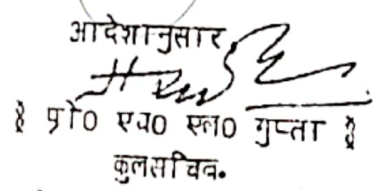 आदेशानुसार
॰ प्रो0 एच0 एल0 गुप्ता ॰
कुलसचिव.